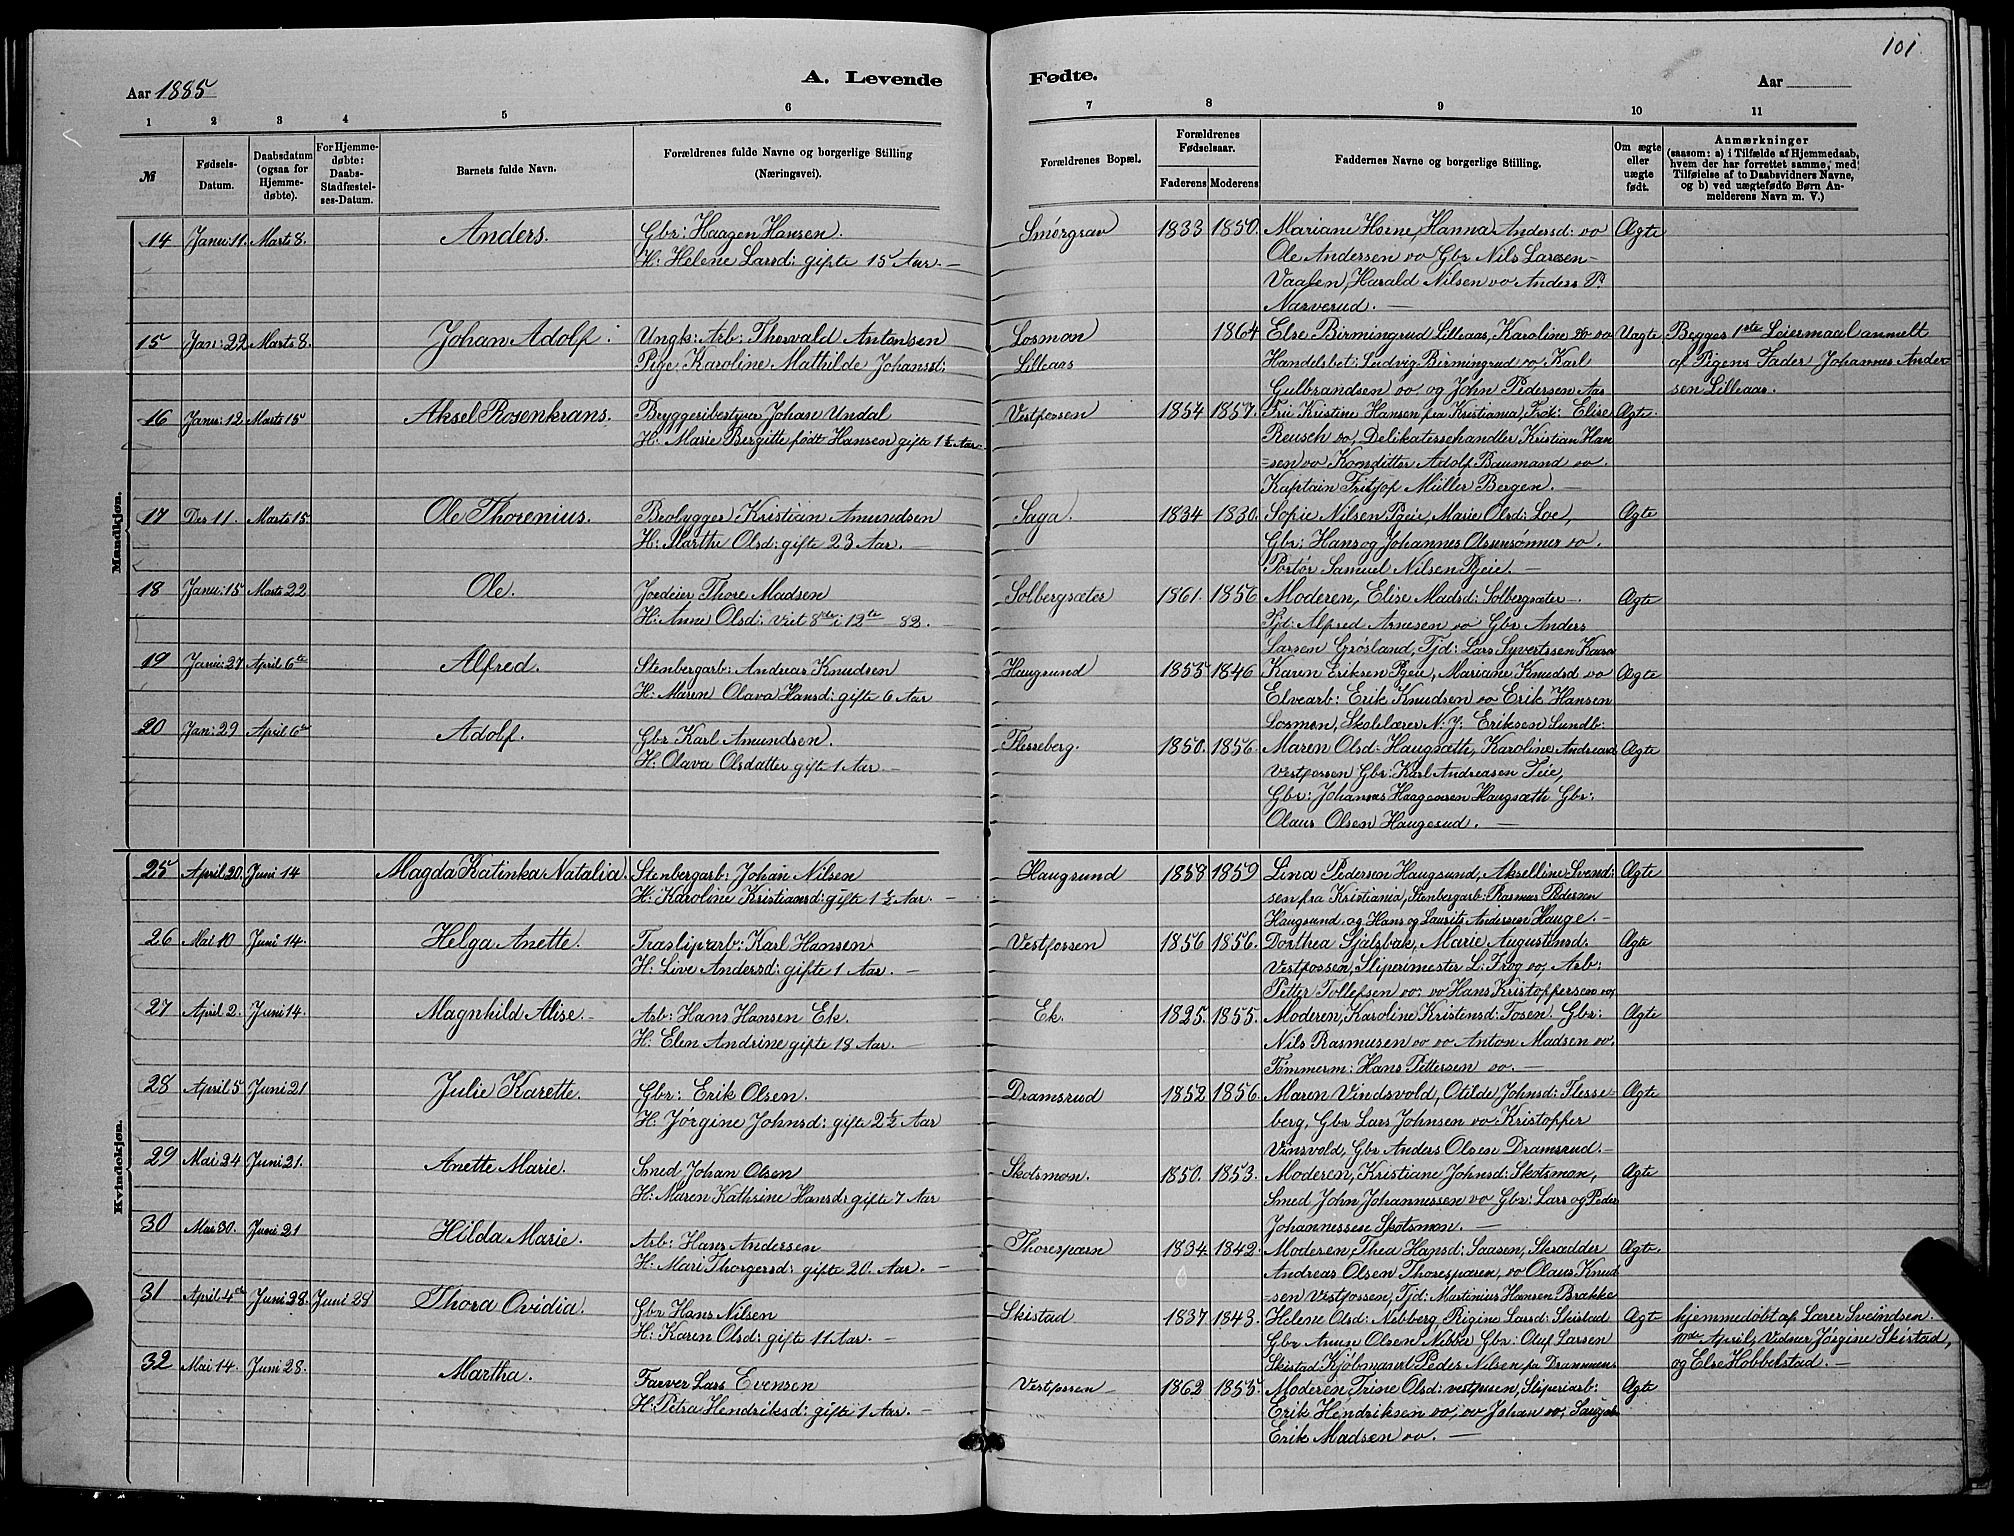 101
Aar 1885
A. Levende Fødte.
Aar
1 2 3 4 5 6 7 8 9 10 11
№
Fødsels-Datum.
Daabsdatum (ogsaa for Hjemme-døbte).
For Hjemme-døbte: Daabs-Stadfæstel-ses-Datum.
Barnets fulde Navn.
Forældrenes fulde Navne og borgerlige Stilling (Næringsvei).
Forældrenes Bopæl.
Forældrenes Fødselsaar.
Faderens Moderens
Faddernes Navne og borgerlige Stilling.
Om ægte eller uægte født.
Anmærkninger
(saasom: a) i Tilfælde af Hjemmedaab,
hvem der har forrettet samme, med
Tilføielse af to Daabsvidners Navne,
og b) ved uægtefødte Børn An-
melderens Navn m. V.)
Mandkjøn.
14 Janu: 11. Marts 8. Anders. Gbr: Haagen Hansen. Smørgrav 1833 1850. Mariane Horne, Hanna Andersd: oo Ægte
H: Helene Larsd: gifte 15 Aar. — Ole Andersen oo Gbr Nils Larsen
Vaalen, Harald Nilsen oo Anders P.
Narverud. —
15 Jan: 22 Marts 8. Johan Adolf. Ungk: Arb: Thorvald Antonsen Losmon 1864 Else Birmingrud Lilleaas, Karoline do oo Uægte Begges 1ste Leiermaal anmelt
Pige, Karoline Mathilde Johansd: Lilleaas Handelsbet: Ludvig Birmingrud oo Karl af Pigens Fader Johannes Ander-
Gulbrandsen oo og John Pedersen Aas sen Lilleaas.
16 Janu: 12 Marts 15 Aksel Rosenkrans. Bryggeribestyrer Johan Undal Vestfossen 1854 1857. Fru Kristine Hansen fra Kristiania, Frøk: Elise Ægte.
H: Marie Bergitte født Hansen gifte 1½ Aar. Reusch oo, Delikatessehandler Kristian Han
=sen oo Konditter Adolf Baumand oo.
Kaptain Fritjof Müller Bergen. —
17 Des 11. Marts 15. Ole Thorenius. Beolygger Kristian Amundsen Saga. 1834 1830. Sofie Nilsen Pgeie, Marie Olsd: Loe, Ægte
H: Marthe Olsd: gifte 23 Aar. — Gbr: Hans og Johannes Olssensønner oo.
Portør Samuel Nilsen Pgeie. —
18 Janu: 15 Marts 22 Ole. Jordeier Thore Madsen Solbergsæter 1861. 1856 Moderen, Elise Madsd: Solbergsæter. Ægte
H: Anne Olsd: viet 8de i 12te 82. — Tjd: Alfred Arnesen oo Gbr Anders
Larsen Grøsland, Tjd: Lars Syvertssen
19 Janu: 27 April 6te Alfred. Stenbergarb: Andreas Knudsen Haugsund 1853 1846 Karen Eriksen Pgeie, Mariane Knudsd oo Ægte
H: Maren Olava Hansd: gifte 6 Aar Elvearb: Erik Knudsen oo Erik Hansen
Losmon, Skolelærer N. J. Eriksen Sundb:
20 Jan: 29 April 6te Adolf. Gbr Karl Amundsen. Flesseberg. 1850. 1856. Maren Olsd: Haugsætte, Karoline Andreasd Ægte
H: Olava Olsdatter gifte 1 Aar. — Vestfossen Gbr: Karl Andreasen Teie,
Gbr: Johannes Haagensen Haugsætte Gbr:
Olaus Olsen Haugesud. —
Kvindekjøn.
25 April 20. Juni 14 Magda Katinka Natalia. Stenbergarb: Johan Nilsen Haugsund 1858 1859 Lina Pedersen Haugsund, Akselline Svend: Ægte
H: Karoline Kristiansd: gifte 1½ Aar. — sen fra Kristiania, Stenbergarb: Rasmus Pedersen
Haugsund og Hans og Laurits Andersen Hauge. —
26 Mai 10 Juni 14. Helga Anette. Træsliparb: Karl Hansen Vestfossen 1856 1856. Dorthea Sjalsbak, Marie Augustinsd. Ægte
H: Live Andersd: gifte 1 Aar. — Vestfossen, Sliperimester L: Frog oo, Arb:
Petter Tollefsen oo, oo Hans Kristoffersen oo,
27 April 2. Juni 14. Magnhild Alise. Arb: Hans Hansen Ek. Ek. 1825. 1855. Moderen, Karoline Kristensd: Fosen. Gbr: Ægte
H: Elen Andrine gifte 18 Aar. — Nils Rasmusen oo oo Anton Madsen oo.
Tømmerm: Hans Pettersen oo. —
28 April 5 Juni 21 Julie Karette. Gbr: Erik Olsen. Dramsrud 1852 1856. Maren Vindsvold, Otilde Johnsd: Flesse- Ægte
H: Jørgine Johnsd: gifte 2½ Aar berg, Gbr Lars Johnsen oo Kristopper
Vinsvold, Gbr Anders Olsen Dramsrud. —
29 Mai 24 Juni 21. Anette Marie. Smed Johan Olsen Skotsmon. 1850. 1853. Moderen, Kristiane Johnsd: Skotsmon, Ægte
H: Maren Kathrine Hansd: gifte 7 Aar Smed John Johannessen oo Gbr: Lars og Peder
Johannessen Skotsmon. —
30 Mai 30. Juni 21 Hilda Marie. Arb: Hans Andersen Thoresparn 1834 1842. Moderen, Thea Hansd: Saasen, Skrædder Ægte.
H: Mari Thorgersd: gifte 20. Aar. — Andreas Olsen Thoresparen, oo Olaus Knud
=sen Vestfossen, Tjd: Martinius Hansen Brække
31 April 4de Juni 28. Juni 28 Thora Ovidia. Gbr Hans Nilsen Skistad 1837 1843. Helene Olsd: Nebberg Rigine Larsd: Skistad Ægte hjemmedøbt af Lærer Sveindsen
H: Karen Olsd: gifte 11 Aar. — Gbr Arnm Olsen Nebba Gbr: Oluf Larsen April, Vidner Jørgine Skistad,
Skistad Kjøbmand Peder Nilsen fra Drammen og Else Hobbelstad. —
32 Mai 14. Juni 28. Martha. Farver Lars Evensen Vestfossen 1862 1855. Moderen Trine Olsd: vestfossen, Sliperiarb: Ægte
H: Petra Hendriksd: gifte 1 Aar. — Erik Hendriksen oo, oo Johan oo,
Erik Madsen oo. —